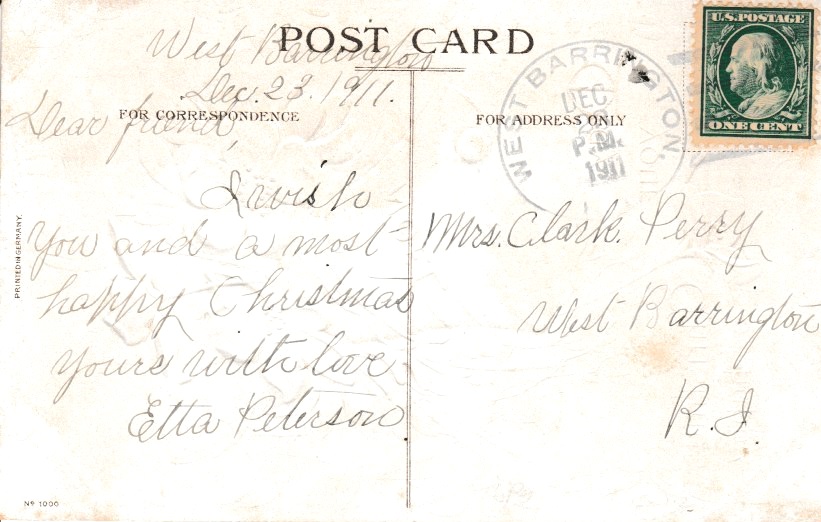 POST CARD
West Barrington
Dec. 23. 1911.
FOR CORRESPONDENCE
Dear friend,
I wish
You and a most
happy Christmas
yours with love
Etta Peterson
PRINTED IN GERMANY.
Nº 1000
FOR ADDRESS ONLY
WEST BARRINGTON,
DEC
P.M.
1911
U.S. POSTAGE
ONE CENT
Mrs. Clark. Perry
West Barrington
R.I.